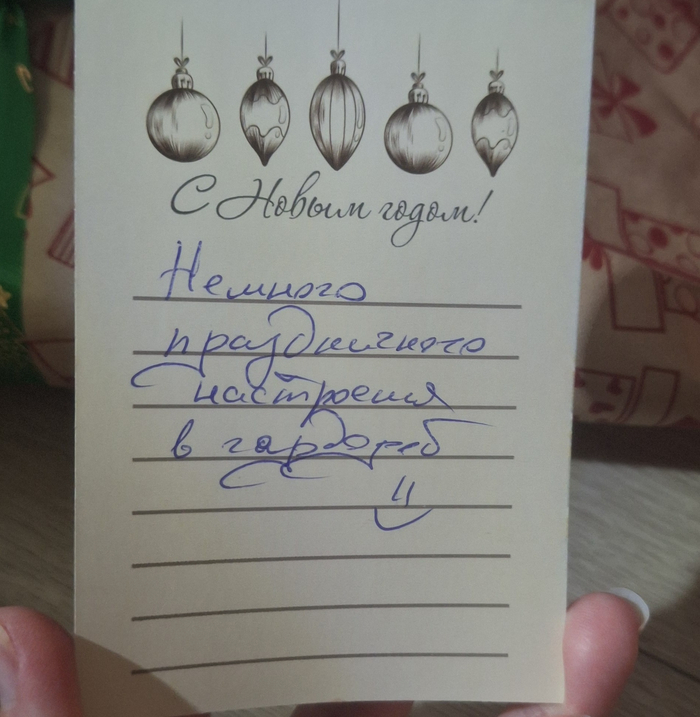 С Новым годом!
Немного
праздничного
настроения
в гардероб